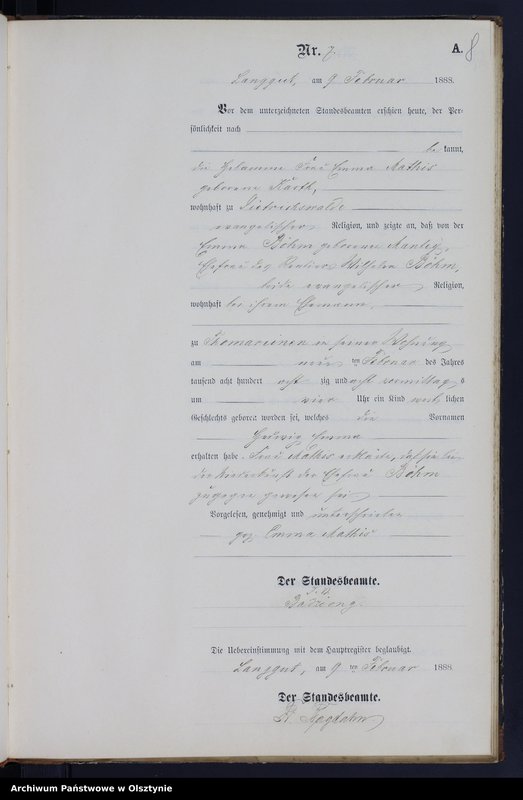 Nr. 7. A. 8
Langgut, am 9 Februar 1888.
Vor dem unterzeichneten Standesbeamten erschien heute, der Per-
sönlichkeit nach
be kannt,
die Hebamme Frau Emma Mathis
geborene
wohnhaft zu Dietrichswalde
evangelischer Religion, und zeigte an, daß von der
Emma Böhm geborene
Ehefrau des Rentiers Wilhelm Böhm,
beide evangelischer Religion,
wohnhaft bei ihrem Ehemann,
zu Thomareinen in seiner Wohnung
am neun ten Februar des Jahres
tausend acht hundert acht zig und acht vormittag s
um vier Uhr ein Kind weib lichen
Geschlechts geboren worden sei, welches die Vornamen
Hedwig Emma
erhalten habe. Frau Mathis erklärte, daß sie bei
der Niederkunft der Ehefrau Böhm
zugegen gewesen sei
Vorgelesen, genehmigt und unterschrieben
gez. Emma Mathis
Der Standesbeamte.
Die Uebereinstimmung mit dem Hauptregister beglaubigt.
Langgut, am 9 ten Februar 1888
Der Standesbeamte.
Archiwum Państwowe w Olsztynie